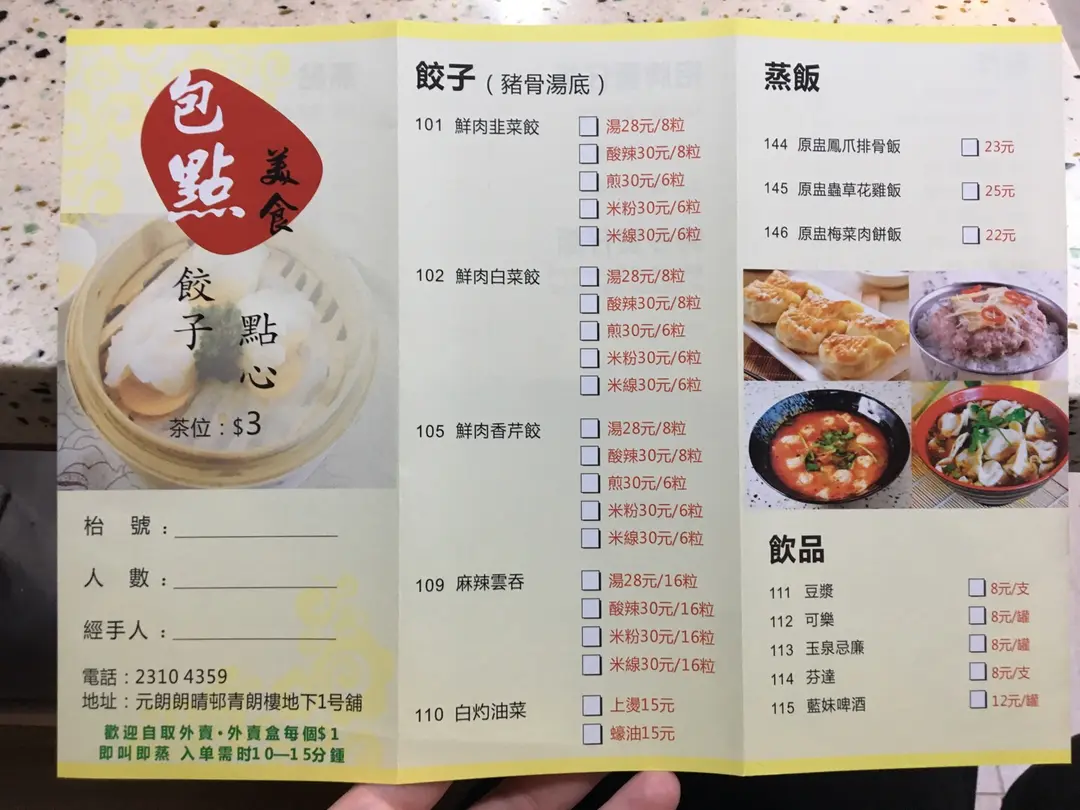 包點
美食
餃子
點心
茶位：$3
枱 號：
人 數：
經手人：
電話：2310 4359
地址：元朗朗晴邨青朗樓地下1號舖
歡迎自取外賣·外賣盒每個$1
即叫即蒸 入单需时10—15分鍾
餃子（豬骨湯底）
101 鮮肉韭菜餃 湯28元/8粒
酸辣30元/8粒
煎30元/6粒
米粉30元/6粒
米線30元/6粒
102 鮮肉白菜餃 湯28元/8粒
酸辣30元/8粒
煎30元/6粒
米粉30元/6粒
米線30元/6粒
105 鮮肉香芹餃 湯28元/8粒
酸辣30元/8粒
煎30元/6粒
米粉30元/6粒
米線30元/6粒
109 麻辣雲吞 湯28元/16粒
酸辣30元/16粒
米粉30元/16粒
米線30元/16粒
110 白灼油菜 上湯15元
蠔油15元
蒸飯
144 原盅鳳爪排骨飯 23元
145 原盅蟲草花雞飯 25元
146 原盅梅菜肉餅飯 22元
飲品
111 豆漿 8元/支
112 可樂 8元/罐
113 玉泉忌廉 8元/罐
114 芬達 8元/支
115 藍妹啤酒 12元/罐